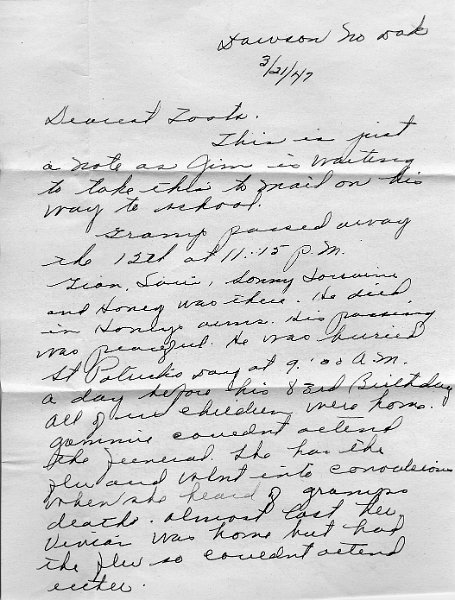 Dawson No Dak
3/21/47
Dearest Toots.
This is just
a note as Jim is waiting
to take this to mail on his
way to school.
Gramp passed away
the 12th at 11:15 P.M.
Sonny Lorraine
and Honey was there. He died
in Honeys arms. His passing
was peaceful. He was buried
St Patricks day at 9:00 A.M.
a day before his 83rd Birthday
all of us children were home.
gammie couldnt attend
the funeral. She has the
flu and went into convulsions
when she heard of gramps
death. almost lost her
Vivian was home but had
the flu so couldnt attend
either.